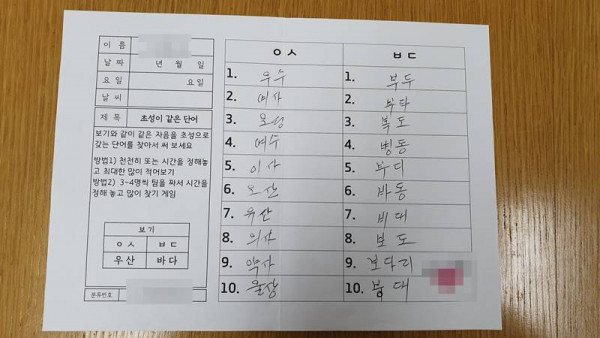 이 름
날 짜 년 월 일
요 일 요 일
날 씨
제 목 초성이 같은 단어
보기와 같이 같은 자음을 초성으로
갖는 단어를 찾아서 써 보세요
방법1) 천천히 또는 시간을 정해놓
고 최대한 많이 적어보기
방법2) 3~4명씩 팀을 짜서 시간을
정해 놓고 많이 찾기 게임
보기
ㅇㅅ ㅂㄷ
우산 바다
분류번호
ㅇㅅ ㅂㄷ
1. 우수 1. 부두
2. 이사 2. 부다
3. 오성 3. 복도
4. 여수 4. 병동
5. 이사 5. 부디
6. 오산 6. 바동
7. 유산 7. 비대
8. 의사 8. 보도
9. 약사 9. 보다리
10. 울상 10. 붐대